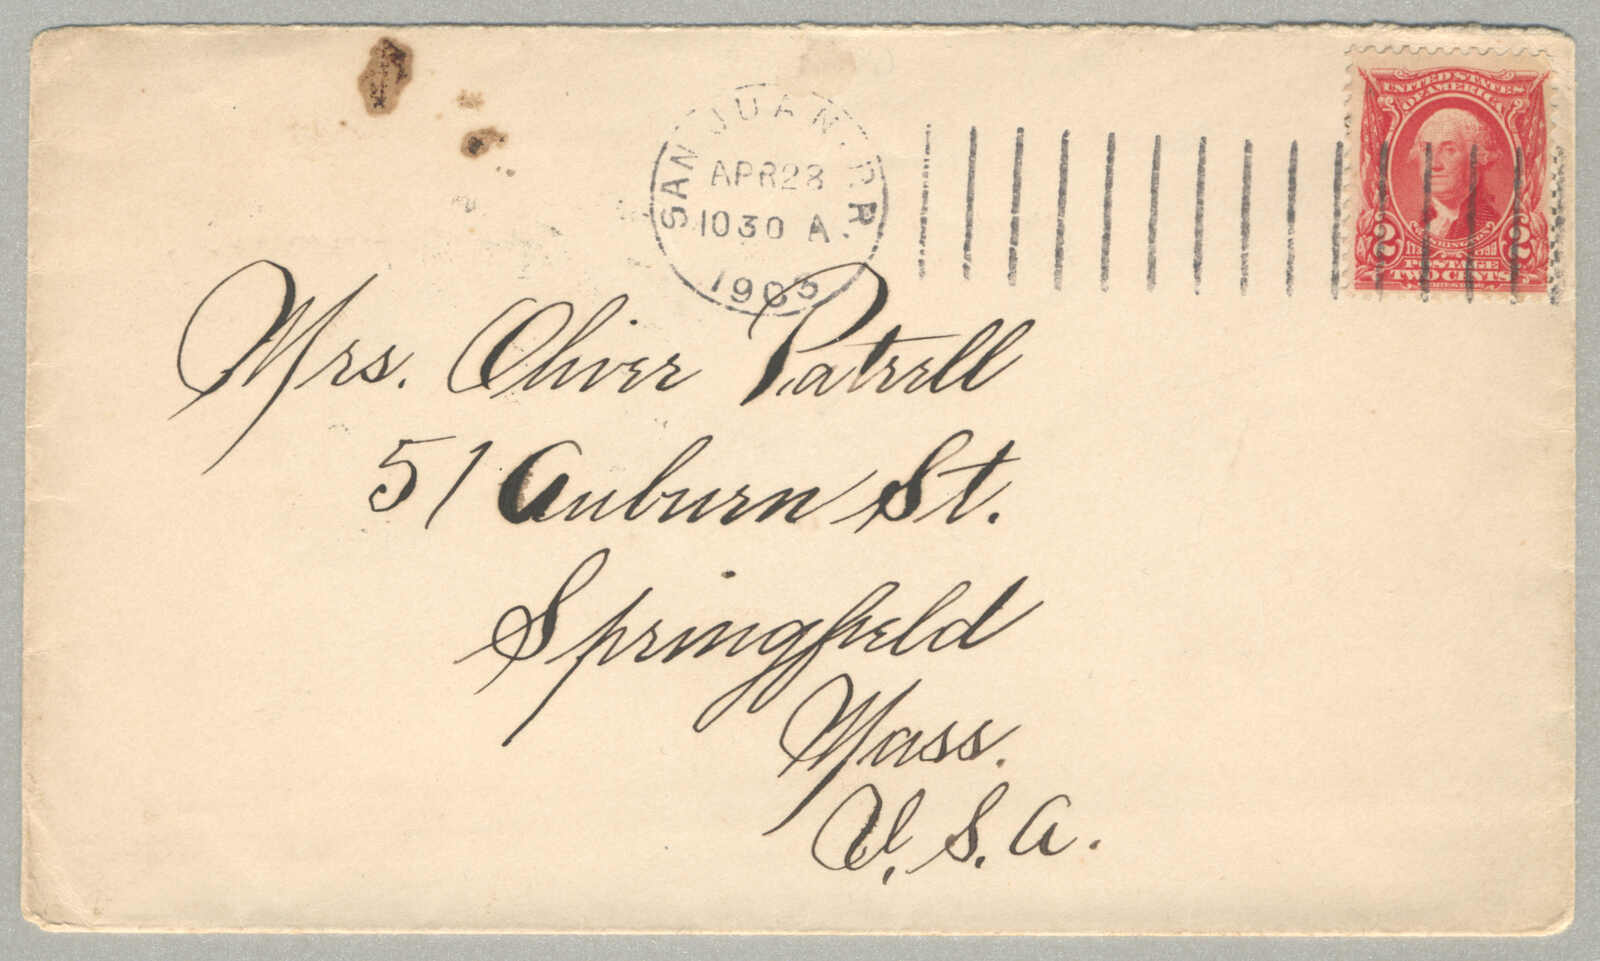 SAN JUAN. P.R.
APR 28
10 30 A.
1903
UNITED STATES
OF AMERICA
WASHINGTON
2 2
POSTAGE
TWO CENTS
Mrs. Oliver Patrell
51 Auburn St.
Springfield
Mass.
U.S.A.